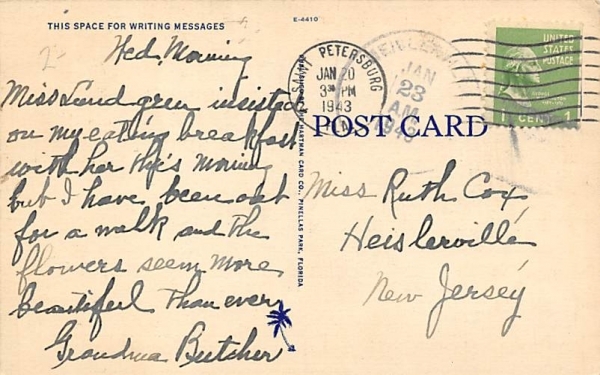 THIS SPACE FOR WRITING MESSAGES
E-4410
Wed. Morning
Miss Lundgren insisted
on my eating breakfast
with her this morning
but I have been out
for a walk and the
flowers seem more
beautiful than ever
Grandma Butcher
HARTMAN CARD CO., PINELLAS PARK, FLORIDA
SAINT PETERSBURG
JAN 20
3 PM
1943
JAN
23
AM
1943
UNITED
STATES
POSTAGE
1 CENT 1
POST CARD
Miss Ruth Cox
Heislerville
New Jersey